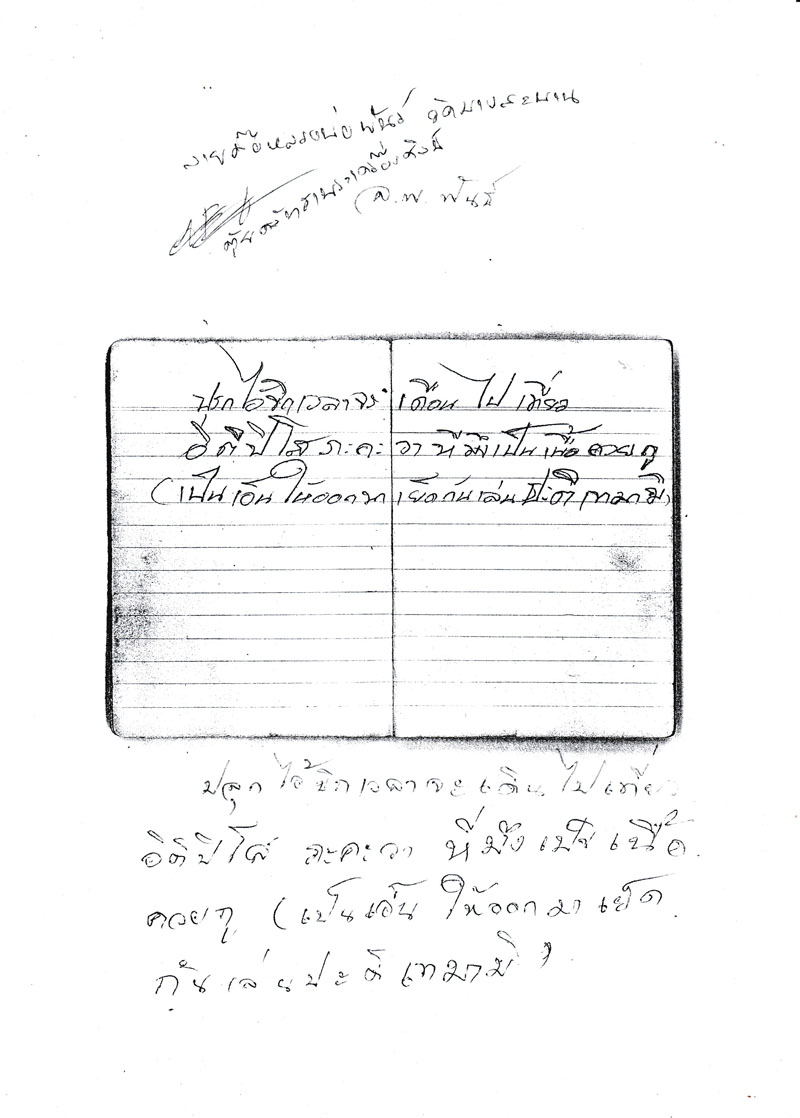 ลายมือหลวงพ่อพันธ์ วัดบางสะพาน
ตุ้ยศรัทธาพระเครื่องศิลป์
(ล.พ. พันธ์
ปุรกไอ้ขิกเวลาจะ เดือน ไป เที่ยว
อิติปิโส ภะคะ วา ทีมึงเป็นเนื้อ ควยกู
(เป็นเอ็น ให้ออกมา เย็ดกันเล่น ปะติ เทมามิ)
ปลุกไอ้ขิกเวลาจะเดินไปเที่ยว
อิติปิโส ภะคะวา ที่มึงเป็นเนื้อ
ควยกู (เป็นเอ็น ให้ออกมา เย็ด
กันเล่นปะติเทมามิ)